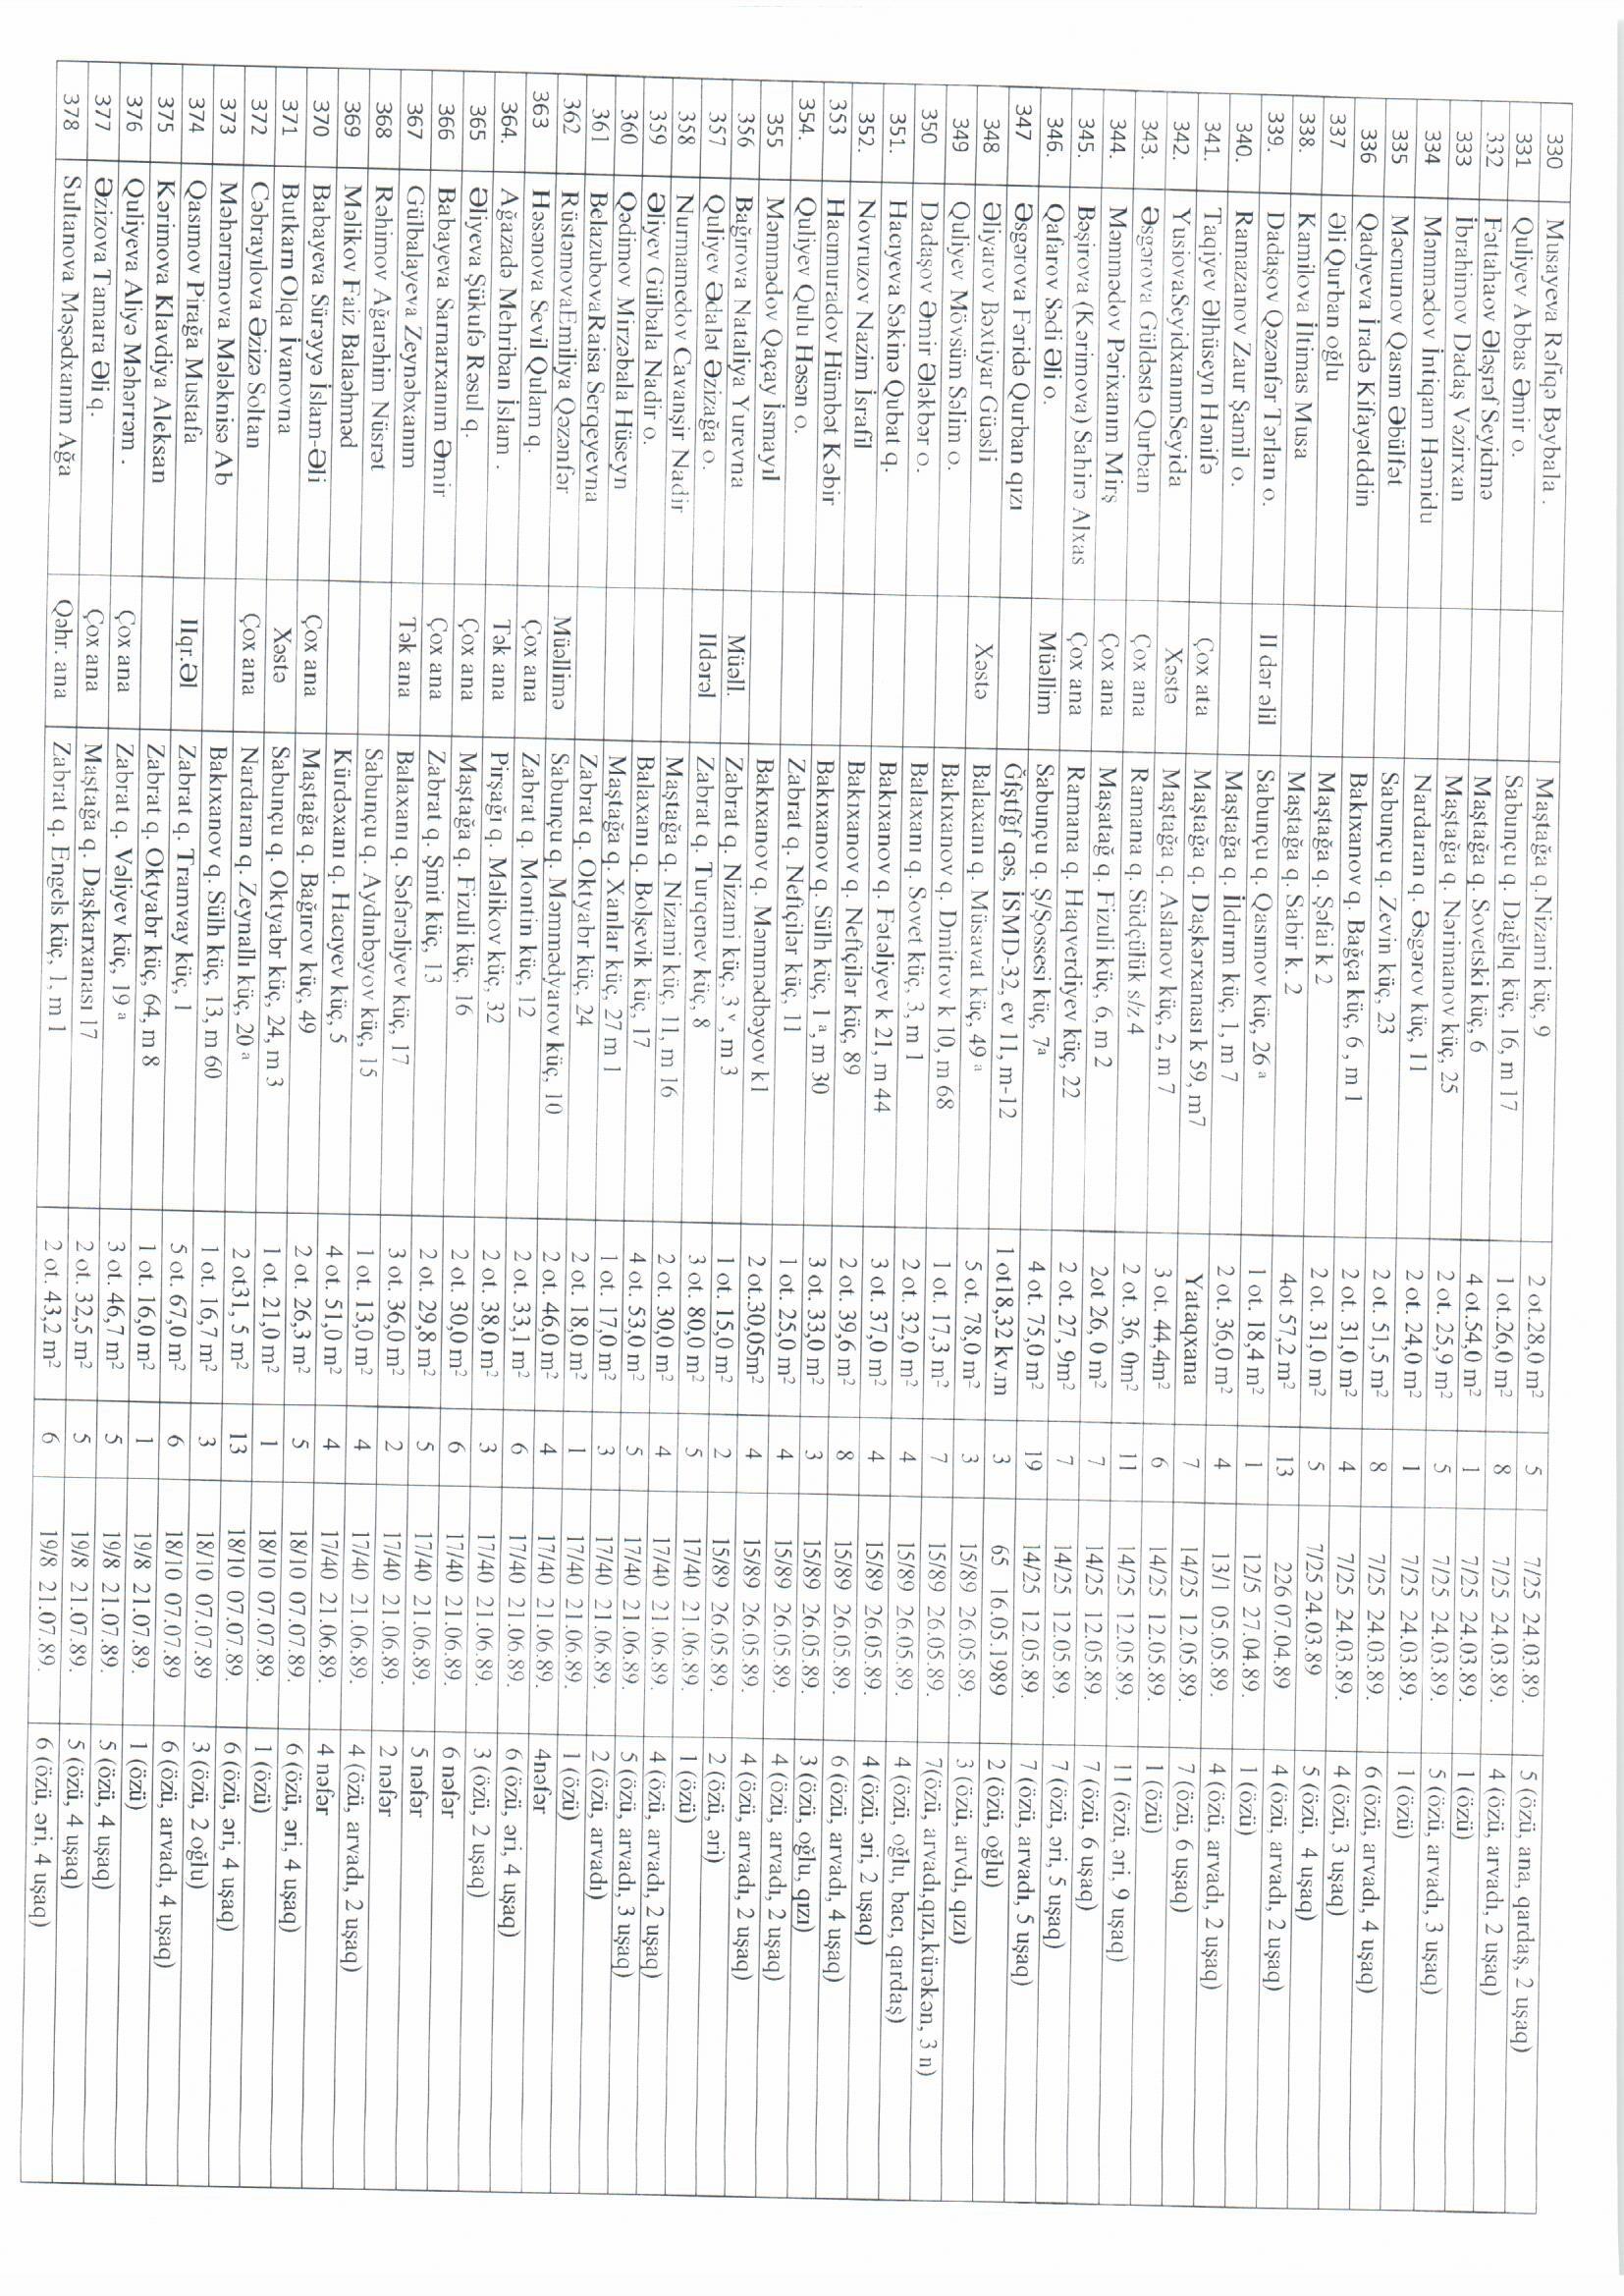 330 Musayeva Rəfiqə Bəybala . Maştağa q.Nizami küç, 9 2 ot.28,0 m² 5 7/25 24.03.89. 5 (özü, ana, qardaş, 2 uşaq)
331 Quliyev Abbas Əmir o. Sabunçu q. Dağlıq küç, 16, m 17 1 ot.26,0 m² 8 7/25 24.03.89. 4 (özü, arvadı, 2 uşaq)
332 Fəttahaov Ələşrəf Seyidmə Maştağa q. Sovetski küç, 6 4 ot.54,0 m² 1 7/25 24.03.89. 1 (özü)
333 İbrahimov Dadaş Vəzirxan Maştağa q. Nərimanov küç, 25 2 ot. 25,9 m² 5 7/25 24.03.89. 5 (özü, arvadı, 3 uşaq)
334 Məmmədov İntiqam Həmidu Nardaran q. Əsgərov küç, 11 2 ot. 24,0 m² 1 7/25 24.03.89. 1 (özü)
335 Məcnunov Qasım Əbülfət Sabunçu q. Zevin küç, 23 2 ot. 51,5 m² 8 7/25 24.03.89. 6 (özü, arvadı, 4 uşaq)
336 Qadıyeva İradə Kifayətddin Bakıxanov q. Bağça küç, 6 , m 1 2 ot. 31,0 m² 4 7/25 24.03.89. 4 (özü, 3 uşaq)
337 Əli Qurban oğlu Maştağa q. Şəfai k 2 2 ot. 31,0 m² 5 7/25 24.03.89 5 (özü, 4 uşaq)
338. Kamilova İltimas Musa Maştağa q. Sabir k. 2 4ot 57,2 m² 13 226 07.04.89 4 (özü, arvadı, 2 uşaq)
339. Dadaşov Qəzənfər Tərlan o. II dər əlil Sabunçu q. Qasımov küç, 26 ª 1 ot. 18,4 m² 1 12/5 27.04.89. 1 (özü)
340. Ramazanov Zaur Şamil o. Maştağa q. İldırım küç, 1, m 7 2 ot. 36,0 m² 4 13/1 05.05.89. 4 (özü, arvadı, 2 uşaq)
341. Taqiyev Əlhüseyn Hənifə Çox ata Maştağa q. Daşkərxanası k 59, m7 Yataqxana 7 14/25 12.05.89. 7 (özü, 6 uşaq)
342. YusiovaSeyidxanımSeyida Xəstə Maştağa q. Aslanov küç, 2, m 7 3 ot. 44,4m² 6 14/25 12.05.89. 1 (özü)
343. Əsgərova Güldəstə Qurban Çox ana Ramana q. Südçülük s/z 4 2 ot. 36, 0m² 11 14/25 12.05.89. 11 (özü, əri, 9 uşaq)
344. Məmmədov Pərixanım Mirş Çox ana Maşatağ q. Fizuli küç, 6, m 2 2ot 26, 0 m² 7 14/25 12.05.89. 7 (özü, 6 uşaq)
345. Bəşirova (Kərimova) Sahirə Alxas Çox ana Ramana q. Haqverdiyev küç, 22 2 ot. 27, 9m² 7 14/25 12.05.89. 7 (özü, əri, 5 uşaq)
346. Qafarov Sədi Əli o. Müəllim Sabunçu q. Ş/Şossesi küç, 7ª 4 ot. 75,0 m² 19 14/25 12.05.89. 7 (özü, arvadı, 5 uşaq)
347 Əsgərova Fəridə Qurban qızı Ğfştfğf qəs, İSMD-32, ev 11, m-12 1 ot18,32 kv.m 3 65 16.05.1989 2 (özü, oğlu)
348 Əliyarov Bəxtiyar Güəsli Xəstə Balaxanı q. Müsavat küç, 49 ª 5 ot. 78,0 m² 3 15/89 26.05.89. 3 (özü, arvdı, qızı)
349 Quliyev Mövsüm Səlim o. Bakıxanov q. Dmitrov k 10, m 68 1 ot. 17,3 m² 7 15/89 26.05.89. 7(özü, arvadı,qızı,kürəkən, 3 n)
350 Dadaşov Əmir Ələkbər o. Balaxanı q. Sovet küç, 3, m 1 2 ot. 32,0 m² 4 15/89 26.05.89. 4 (özü, oğlu, bacı, qardaş)
351. Hacıyeva Səkinə Qubat q. Bakıxanov q. Fətəliyev k 21, m 44 3 ot. 37,0 m² 4 15/89 26.05.89. 4 (özü, əri, 2 uşaq)
352. Novruzov Nazim İsrafil Bakıxanov q. Neftçilər küç, 89 2 ot. 39,6 m² 8 15/89 26.05.89. 6 (özü, arvadı, 4 uşaq)
353 Hacımuradov Hümbət Kəbir Bakıxanov q. Sülh küç, 1 ª, m 30 3 ot. 33,0 m² 3 15/89 26.05.89. 3 (özü, oğlu, qızı)
354. Quliyev Qulu Həsən o. Zabrat q. Neftçilər küç, 11 1 ot. 25,0 m² 4 15/89 26.05.89. 4 (özü, arvadı, 2 uşaq)
355 Məmmədov Qaçay İsmayıl Bakıxanov q. Məmmədbəyov k1 2 ot.30,05m² 4 15/89 26.05.89. 4 (özü, arvadı, 2 uşaq)
356 Bağırova Nataliya Yurevna Müəll. Zabrat q. Nizami küç, 3 ᵛ, m 3 1 ot. 15,0 m² 2 15/89 26.05.89. 2 (özü, əri)
357 Quliyev Ədalət Əzizağa o. IIdərəl Zabrat q. Turqenev küç, 8 3 ot. 80,0 m² 5 17/40 21.06.89. 1 (özü)
358 Nurmamedov Cavanşir Nadir Maştağa q. Nizami küç, 11, m 16 2 ot. 30,0 m² 4 17/40 21.06.89. 4 (özü, arvadı, 2 uşaq)
359 Əliyev Gülbala Nadir o. Balaxanı q. Bolşevik küç, 17 4 ot. 53,0 m² 5 17/40 21.06.89. 5 (özü, arvadı, 3 uşaq)
360 Qədimov Mirzəbala Hüseyn Maştağa q. Xanlar küç, 27 m 1 1 ot. 17,0 m² 3 17/40 21.06.89. 2 (özü, arvadı)
361 BelazubovaRaisa Serqeyevna Zabrat q. Oktyabr küç, 24 2 ot. 18,0 m² 1 17/40 21.06.89. 1 (özü)
362 RüstəmovaEmiliya Qəzənfər Müəllimə Sabunçu q. Məmmədyarov küç, 10 2 ot. 46,0 m² 4 17/40 21.06.89. 4nəfər
363 Həsənova Sevil Qulam q. Çox ana Zabrat q. Montin küç, 12 2 ot. 33,1 m² 6 17/40 21.06.89. 6 (özü, əri, 4 uşaq)
364. Ağazadə Mehriban İslam . Tək ana Pirşağı q. Məlikov küç, 32 2 ot. 38,0 m² 3 17/40 21.06.89. 3 (özü, 2 uşaq)
365 Əliyeva Şükufə Rəsul q. Çox ana Maştağa q. Fizuli küç, 16 2 ot. 30,0 m² 6 17/40 21.06.89. 6 nəfər
366 Babayeva Sarnarxanım Əmir Çox ana Zabrat q. Şmit küç, 13 2 ot. 29,8 m² 5 17/40 21.06.89. 5 nəfər
367 Gülbalayeva Zeynəbxanım Tək ana Balaxanı q. Səfərəliyev küç, 17 3 ot. 36,0 m² 2 17/40 21.06.89. 2 nəfər
368 Rəhimov Ağarəhim Nüsrət Sabunçu q. Aydınbəyov küç, 15 1 ot. 13,0 m² 4 17/40 21.06.89. 4 (özü, arvadı, 2 uşaq)
369 Məlikov Faiz Balaəhməd Kürdəxanı q. Hacıyev küç, 5 4 ot. 51,0 m² 4 17/40 21.06.89. 4 nəfər
370 Babayeva Sürəyyə İslam-Əli Çox ana Maştağa q. Bağırov küç, 49 2 ot. 26,3 m² 5 18/10 07.07.89. 6 (özü, əri, 4 uşaq)
371 Butkarn Olqa İvanovna Xəstə Sabunçu q. Oktyabr küç, 24, m 3 1 ot. 21,0 m² 1 18/10 07.07.89. 1 (özü)
372 Cəbrayılova Əzizə Soltan Çox ana Nardaran q. Zeynallı küç, 20 ª 2 ot31, 5 m² 13 18/10 07.07.89. 6 (özü, əri, 4 uşaq)
373 Məhərrəmova Mələknisə Ab Bakıxanov q. Sülh küç, 13, m 60 1 ot. 16,7 m² 3 18/10 07.07.89 3 (özü, 2 oğlu)
374 Qasımov Pirağa Mustafa IIqr.Əl Zabrat q. Tramvay küç, 1 5 ot. 67,0 m² 6 18/10 07.07.89 6 (özü, arvadı, 4 uşaq)
375 Kərimova Klavdiya Aleksan Zabrat q. Oktyabr küç, 64, m 8 1 ot. 16,0 m² 1 19/8 21.07.89. 1 (özü)
376 Quliyeva Aliyə Məhərrəm . Çox ana Zabrat q. Vəliyev küç, 19 ª 3 ot. 46,7 m² 5 19/8 21.07.89. 5 (özü, 4 uşaq)
377 Əzizova Tamara Əli q. Çox ana Maştağa q. Daşkarxanası 17 2 ot. 32,5 m² 5 19/8 21.07.89. 5 (özü, 4 uşaq)
378 Sultanova Məşədxanım Ağa Qəhr. ana Zabrat q. Engels küç, 1, m 1 2 ot. 43,2 m² 6 19/8 21.07.89. 6 (özü, əri, 4 uşaq)